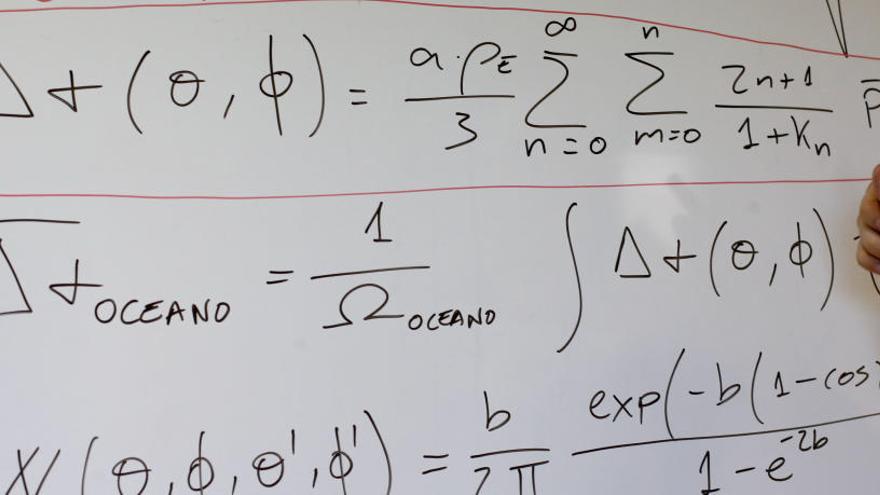 Δ+(θ,ϕ) = a·ρE/3 ∑n=0^∞ ∑m=0^n 2n+1/1+Kn P̄
Δ+OCEANO = 1/ΩOCEANO ∫ Δ+(θ,ϕ)
(θ,ϕ,θ',ϕ') = b/2π exp(-b(1-cos/1-e^-2b